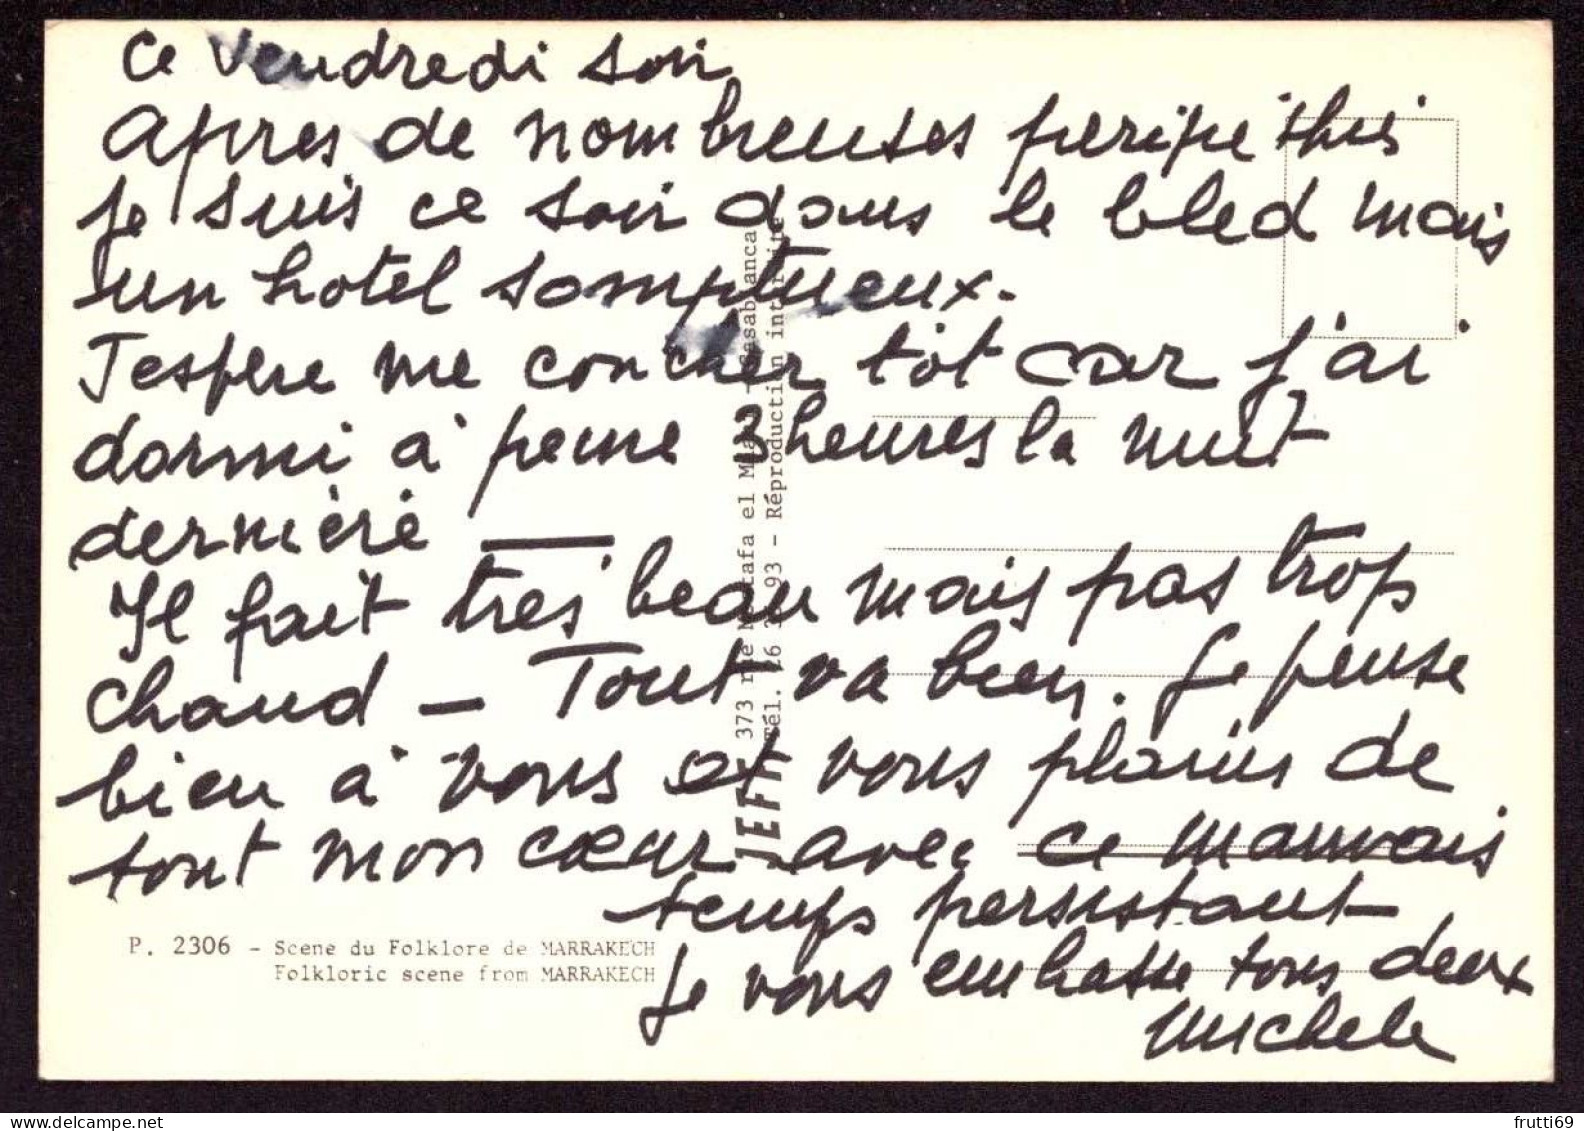 Ce Vendredi soir
Apres de nombreuses peripethies
je suis ce soir dans le bled mais
un hotel somptueux.
J'espère me coucher tôt car j'ai
dormi à peine 3 heures la nuit
dernière —
Il fait très beau mais pas trop
chaud — Tout va bien. Je pense
bien à vous et vous plains de
tout mon cœur avec ce mauvais
temps persistant
Je vous embrasse tous deux
Michele
P. 2306 - Scene du Folklore de MARRAKECH
Folkloric scene from MARRAKECH
JEFF
373 rue Mustafa el Maani Casablanca
Tél. 93 - Réproduction interdite
frutti69